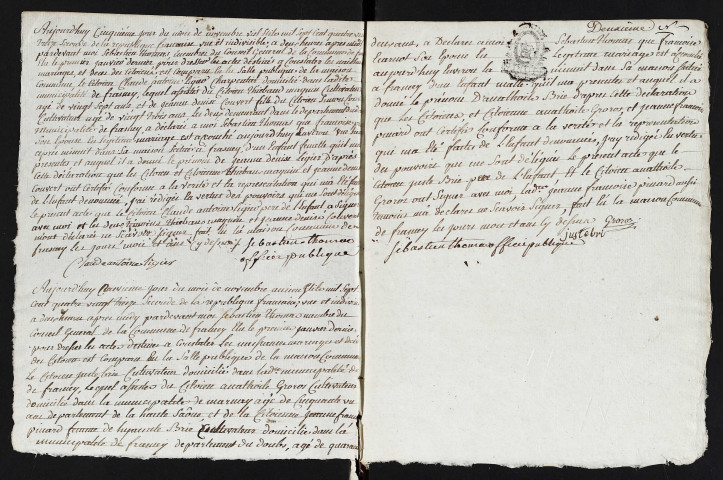 Aujourdhuy Cinquieme jour du mois de novembre mil Sept Cent quatre vingt
treize Seconde de la republique francoise une et indivisible a deux heures apres midi
pardevant moi Sebastien Thomas membre du Conseil General de la Commune
Elu le premier janvier dernier pour dresser les actes destinés a Constater les naissances
mariages et deces des Citoiens, est Comparu en la Salle publique de la maison
Commune, le Citoien Claude antoine Ligier domicilié dans ladite
municipalité de franey, lequel assisté du Citoien Thiebaud maguin Cultivateur
agé de vingt Sept ans, et de jeanne denise Convert fille du Citoien
Cultivateur agé de vingt trois ans, les deux demeurant dans le departement du
Municipalité de franey, a déclaré a moi Sebastien Thomas que françoise
Son Epouse en legitime mariage est accouchée aujourdhuy
apres midi dans la maison Scituée a franey, d'un Enfant femelle quil ma
presentée et auquel il a donné le prenom de jeanne denise Ligier d'apres
Cette déclaration que les Citoien et Citoienne Thiebaud maguin et jeanne denise
Convert ont Certifié Conforme a la verité et la representation qui ma Eté faite
de l'Enfant denommé, j'ay redigé en vertu des pouvoirs qui me Sont
le present acte que le Citoien Claude antoine Ligier pere de l'Enfant a Signé
avec moi et les deux temoins Thiebaud maguin et jeanne denise Convert
mont déclaré ne Scavoir Signer, fait en la maison Commune de
franey les jour mois et an Cy dessus / Sebastien thomas
Claude antoine Ligier officie publique
Aujourdhuy Onzieme jour du mois de novembre mil Sept
Cent quatre vingt treize Seconde de la republique francoise, une et indivisible
a deux heures apres midy pardevant moi Sebastien Thomas membre du
Conseil General de la Commune de franey Elu le premier janvier dernier
pour dresser les actes destinés a Constater les naissances mariages et deces
des Citoiens est Comparu En la Salle publique de la maison Commune
Le Citoien juste brie Cultivateur domicilié dans ladte municipalité
de franey, Lequel assisté du Citoien anathoile Groros Cultivateur
domicilié dans la municipalité de marnay agé de Cinquante
ans departement de la haute Saône et de la Citoienne jeanne françoise
pinard femme de Brie Cultivateur domiciliée dans la
municipalité de franey departement du doubs, agée de quarante
Deuxieme
deux ans, a Déclaré a moi Sebastien Thomas que françoise
jeannot Son Epouse En Legitime mariage est accouchée
aujourdhuy dans Sa maison Scituée
a franey d'un Enfant male quil ma presenté et auquel il a
donné le prenom d'anathoile Brie d'apres Cette déclaration
que les Citoiens et Citoienne anathoile Groros, et jeanne françoise
pinard ont Certifié Conforme a la verité et la representation
qui ma Eté faite de l'Enfant denommé, j'ay redigé En vertu
des pouvoirs qui me Sont delegués le present acte que le
Citoien juste Brie pere de L'Enfant et le Citoien anathoile
Groros ont Signés avec moi Ladte jeanne françoise pinard aussi
temoin ma déclaré ne Scavoir Signer, fait En la maison Commune
de franey les jours mois et an Cy dessus Groros
Sebastien thomas officie publique juste bri